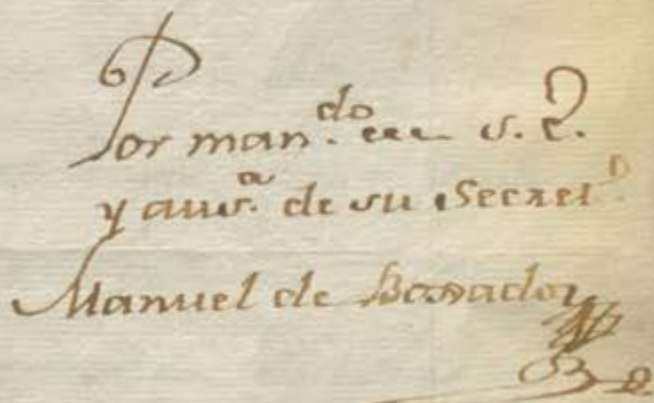 Por man.do de S.E.
y aus.a de su Secret.o
Manuel de